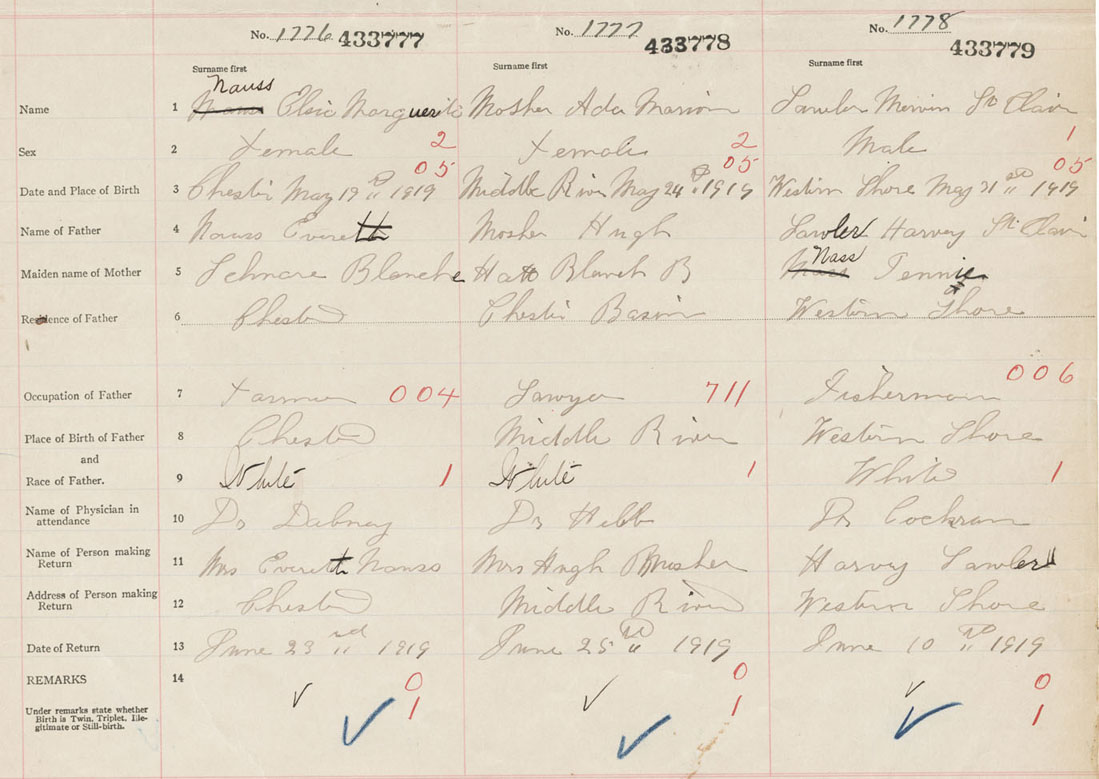 No. 1776 433777 No. 1777 433778 No. 1778 433779
Surname first Surname first Surname first
Nauss
Name 1 Elsie Marguerite Mosher Ada Marion Lawler Mervin St Clair
Sex 2 Female 2 Female 2 Male 1
05 05 05
Date and Place of Birth 3 Chester May 19th 1919 Middle River May 24th 1919 Western Shore May 31st 1919
Name of Father 4 Nauss Everett Mosher Hugh Lawler Harvey St Clair
Nass
Maiden name of Mother 5 Schnare Blanche Hatt Blanch B Jennie
Residence of Father 6 Chester Chester Basin Western Shore
Occupation of Father 7 Farmer 004 Sawyer 711 Fisherman 006
Place of Birth of Father 8 Chester Middle River Western Shore
and
Race of Father. 9 White 1 White 1 White 1
Name of Physician in
attendance 10 Dr Dabney Dr Hebb Dr Cochran
Name of Person making
Return 11 Mrs Everett Nauss Mrs Hugh Mosher Harvey Lawler
Address of Person making
Return 12 Chester Middle River Western Shore
Date of Return 13 June 23rd 1919 June 25th 1919 June 10th 1919
REMARKS 14 0 0 0
Under remarks state whether
Birth is Twin, Triplet, Ille-
gitimate or Still-birth. 1 1 1